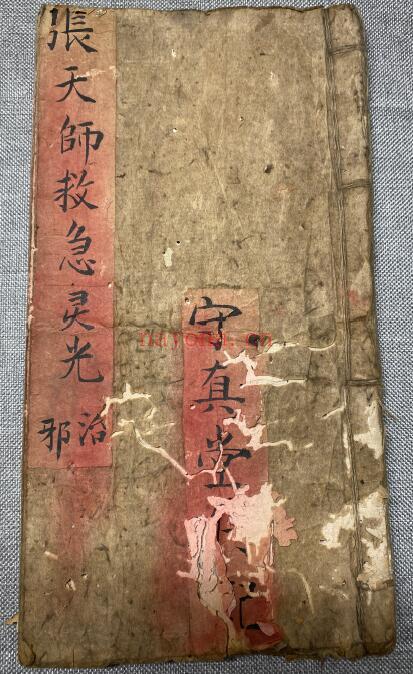 張天師救急灵光
治
邪
守真堂
nayona.cn